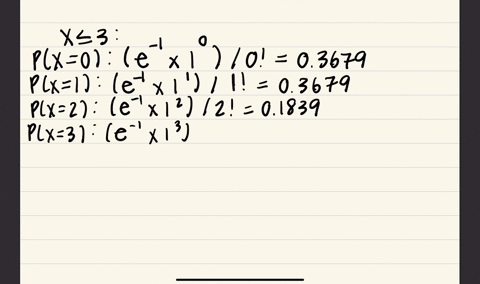 X ≤ 3 :
P(X=0) : (e⁻¹ x 1⁰) / 0! = 0.3679
P(X=1) : (e⁻¹ x 1¹) / 1! = 0.3679
P(X=2) : (e⁻¹ x 1²) / 2! = 0.1839
P(X=3) : (e⁻¹ x 1³)